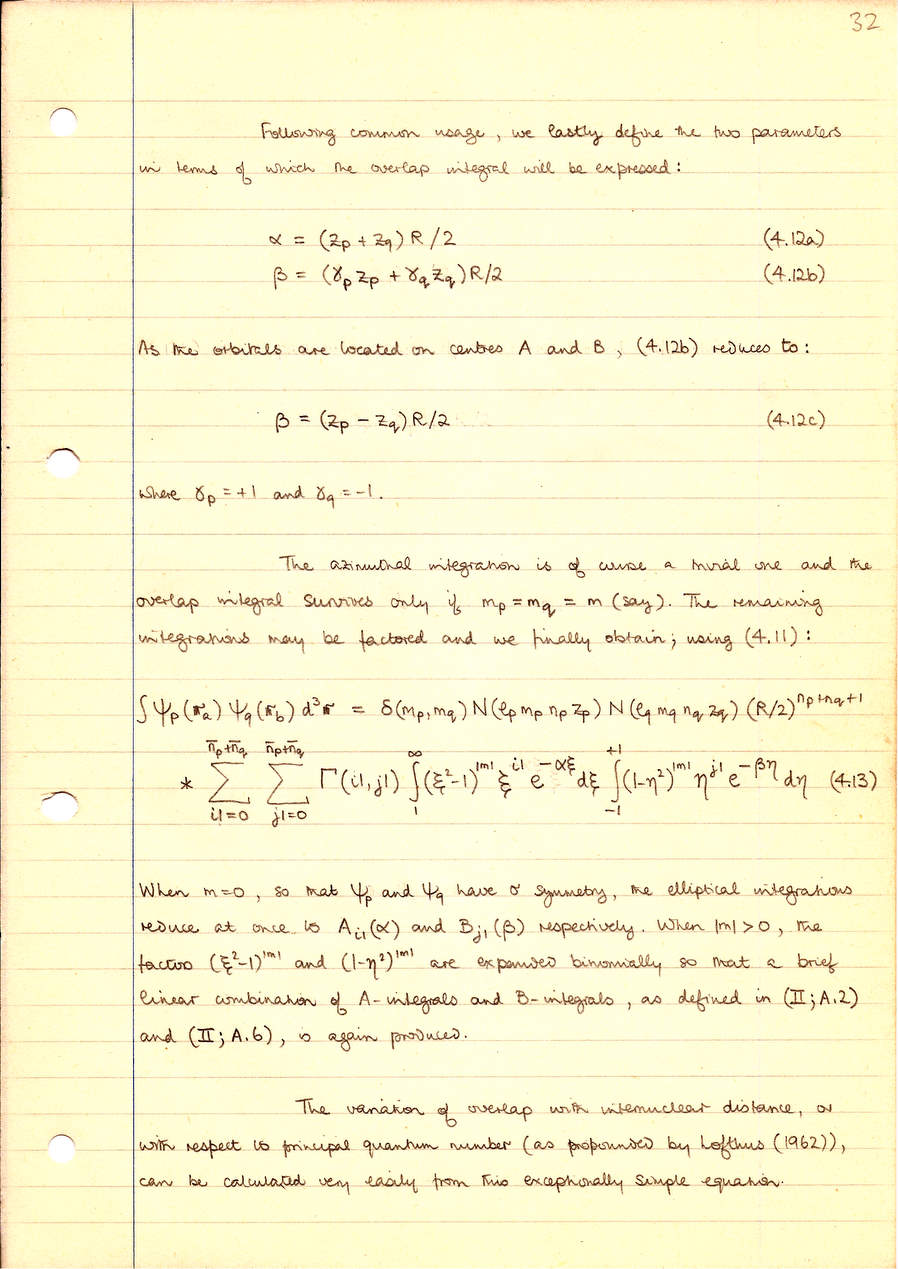 32
Following common usage, we lastly define the two parameters
in terms of which the overlap integral will be expressed:
α = (zp + zq) R/2 (4.12a)
β = (γp zp + γq zq) R/2 (4.12b)
As the orbitals are located on centres A and B, (4.12b) reduces to:
β = (zp − zq) R/2 (4.12c)
where γp = +1 and γq = −1.
The azimuthal integration is of course a trivial one and the
overlap integral survives only if mp = mq = m (say). The remaining
integrations may be factored and we finally obtain, using (4.11):
∫ψp(𝐫a) ψq(𝐫b) d³𝐫 = δ(mp, mq) N(ℓp mp np zp) N(ℓq mq nq zq) (R/2)^(np+nq+1)
* Σ_{i1=0}^{n̄p+n̄q} Σ_{j1=0}^{n̄p+n̄q} Γ(i1, j1) ∫_1^∞ (ξ²−1)^|m| ξ^i1 e^−αξ dξ ∫_−1^+1 (1−η²)^|m| η^j1 e^−βη dη (4.13)
When m=0, so that ψp and ψq have σ symmetry, the elliptical integrations
reduce at once to A_i1(α) and B_j1(β) respectively. When |m| > 0, the
factors (ξ²−1)^|m| and (1−η²)^|m| are expanded binomially so that a brief
linear combination of A-integrals and B-integrals, as defined in (II; A.2)
and (II; A.6), is again produced.
The variation of overlap with internuclear distance, or
with respect to principal quantum number (as propounded by Lofthus (1962)),
can be calculated very easily from this exceptionally simple equation.